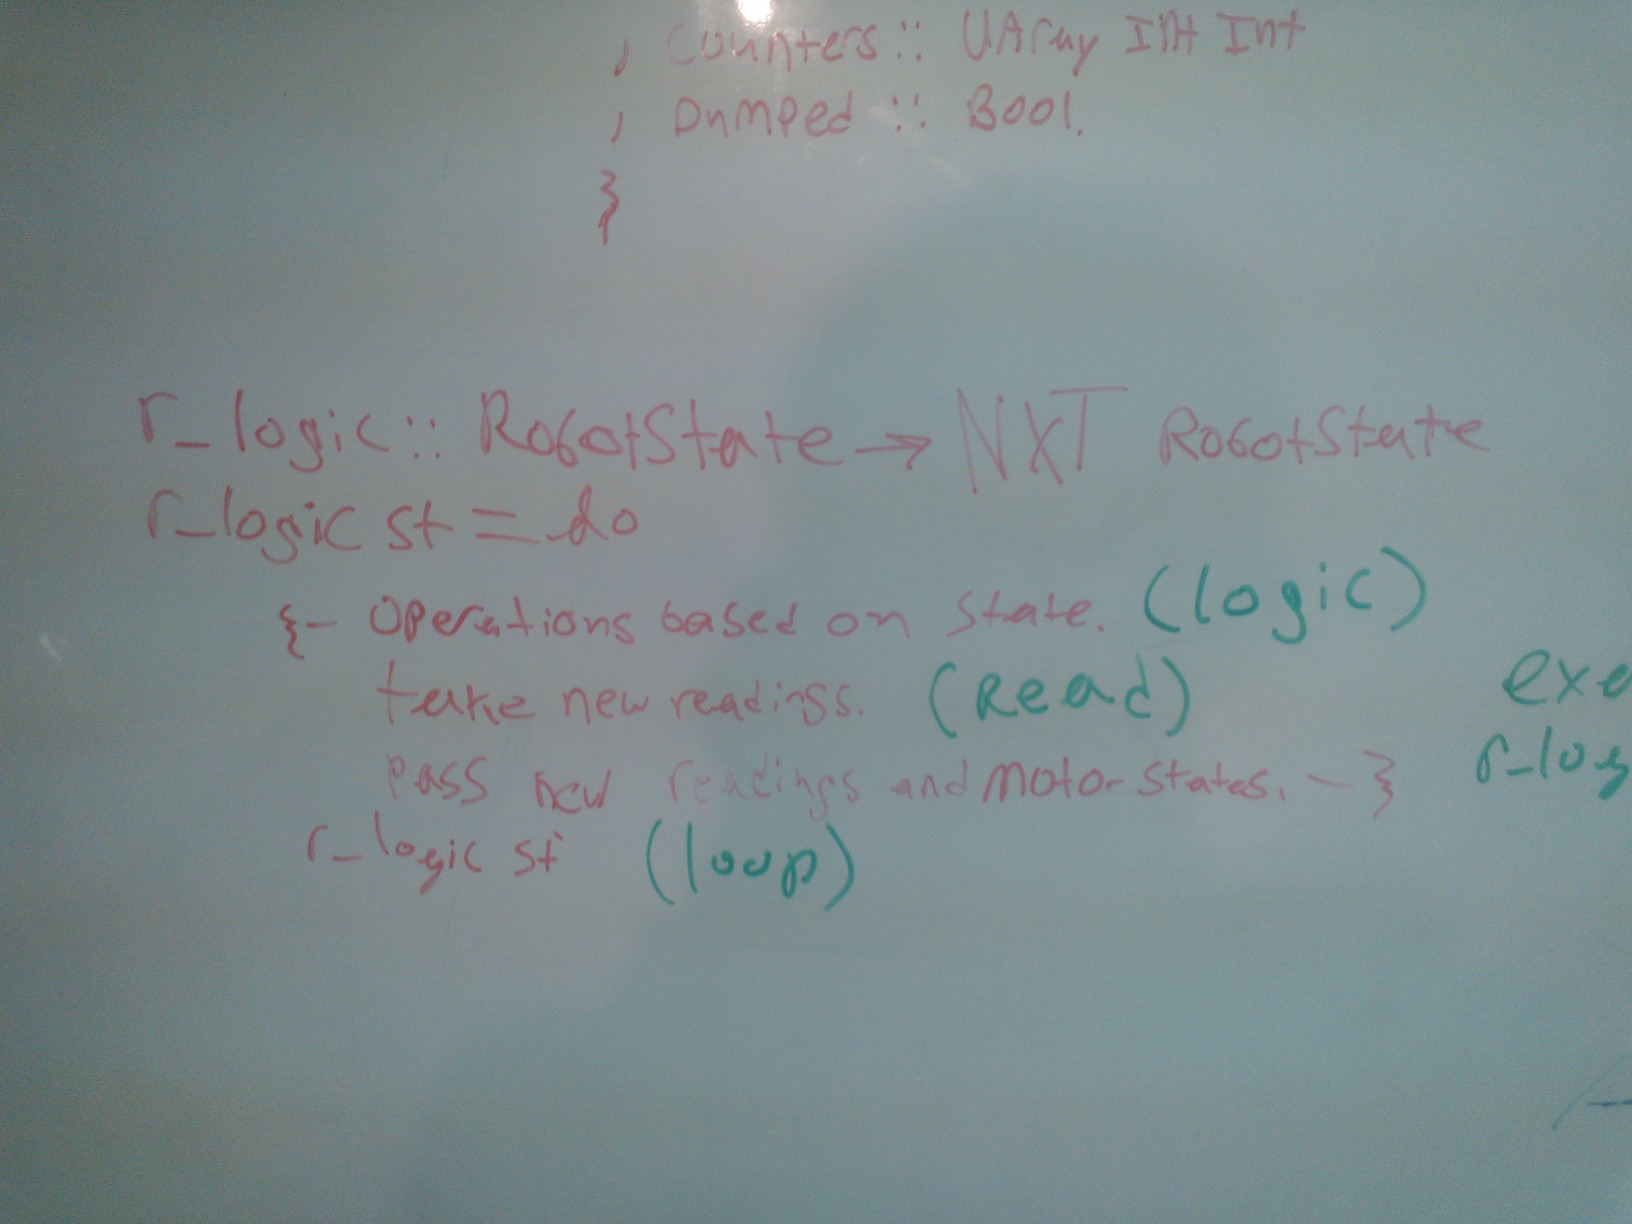 , Counters :: UArray Int Int
, Dumped :: Bool.
}
r_logic :: RobotState → NXT RobotState
r_logic st = do
{- Operations based on state. (logic)
take new readings. (Read)
pass new readings and motor states. -}
r_logic st (loop)
exe
r_log